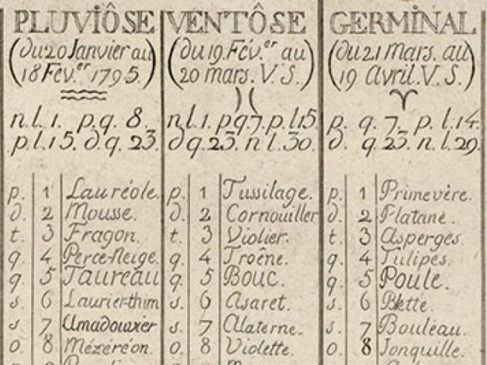 PLUVIÔSE
(du 20 Janvier au
18 Fév.er 1795.)
n.l. 1. p.q. 8.
p.l. 15. d.q. 23.
p. 1 Lauréole.
d. 2 Mousse.
t. 3 Fragon.
q. 4 Perce-Neige.
q. 5 Taureau
s. 6 Laurier-thim
s. 7 Amadouvier
o. 8 Mézéréon.
VENTÔSE
(du 19. Fév.er au
20 mars. V.S.)
n.l. 1. p.q. 7. p.l. 15.
d.q. 23. n.l. 30.
p. 1 Tussilage.
d. 2 Cornouiller
t. 3 Violier.
q. 4 Troëne.
q. 5 Bouc.
s. 6 Asaret.
s. 7 Alaterne.
o. 8 Violette.
GERMINAL
(du 21 Mars. au
19 Avril. V.S.)
p. q. 7. p.l. 14.
d. q. 23. n.l. 29.
p. 1 Primevère.
d. 2 Platane.
t. 3 Asperges.
q. 4 Tulipes.
q. 5 Poule.
s. 6 Blette.
s. 7 Bouleau.
o. 8 Jonquille.